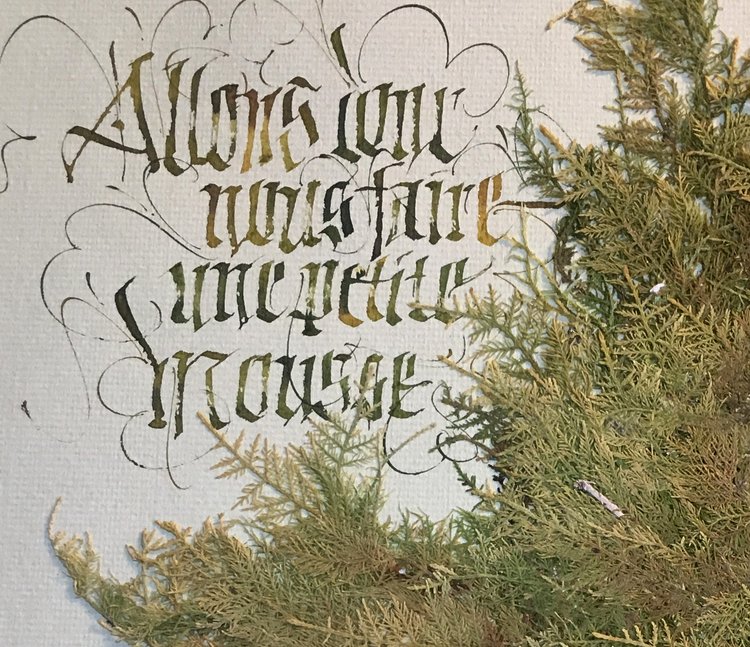 Allons donc
nous faire
une petite
mousse